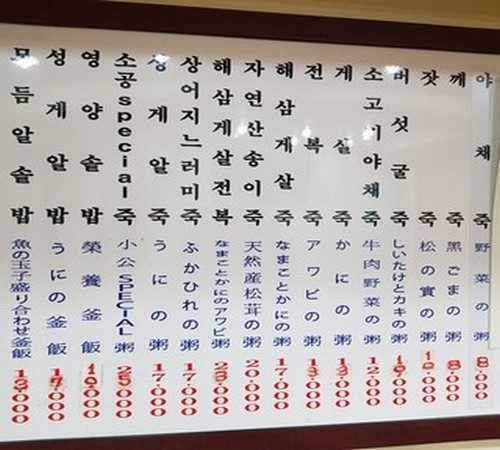 야채죽 野菜の粥 8.000
깨죽 黒ごまの粥 8.000
잣죽 松の實の粥 10.000
버섯굴죽 しいたけとカキの粥
소고기야채죽 牛肉野菜の粥 12.000
게살죽 かにの粥 13.000
전복죽 アワビの粥 13.000
해삼게살죽 なまことかにの粥 17.000
자연산송이죽 天然産松茸の粥 20.000
해삼게살전복 なまことかにのアワビ粥
상어지느러미죽 ふかひれの粥 17.000
성게알죽 うにの粥 17.000
소공special죽 小公SPECIAL粥 25.000
영양솥밥 榮養釜飯 10.000
성게알밥 うにの釜飯 17.000
모듬알솥밥 魚の玉子盛り合わせ釜飯 13.000